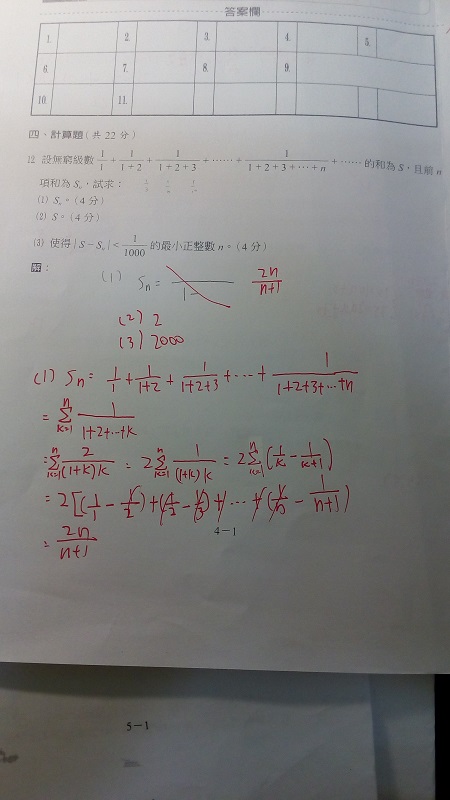 答案欄
1. 2. 3. 4. 5.
6. 7. 8. 9.
10. 11.
四、計算題(共 22 分)
12. 設無窮級數 1/1 + 1/(1+2) + 1/(1+2+3) + …… + 1/(1+2+3+…+n) + …… 的和為 S,且前 n
項和為 Sₙ,試求:
(1) Sₙ。(4 分)
(2) S。(4 分)
(3) 使得 |S−Sₙ| < 1/1000 的最小正整數 n。(4 分)
解:
(1) Sₙ = 2n/(n+1)
(2) 2
(3) 2000
(1) Sₙ = 1/1 + 1/(1+2) + 1/(1+2+3) + … + 1/(1+2+3+…+n)
= Σₖ₌₁ⁿ 1/(1+2+…+k)
= Σₖ₌₁ⁿ 2/((1+k)k) = 2Σₖ₌₁ⁿ 1/((1+k)k) = 2Σₖ₌₁ⁿ (1/k − 1/(k+1))
= 2[(1/1 − 1/2) + (1/2 − 1/3) + … + (1/n − 1/(n+1))
= 2n/(n+1)
4−1
5−1